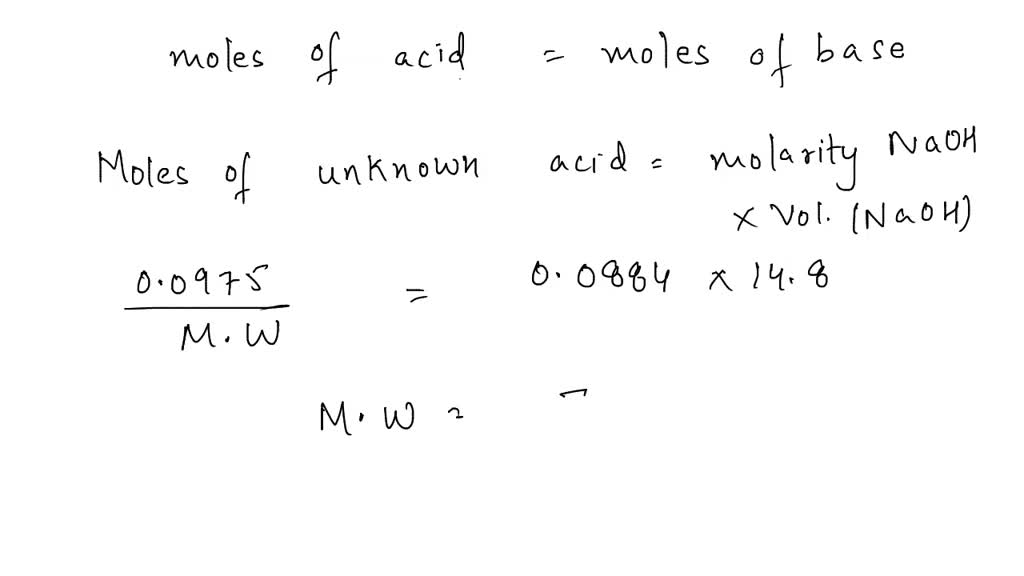 moles of acid = moles of base
Moles of unknown acid = molarity NaOH
x Vol. (NaOH)
0.0975
= 0.0884 x 14.8
M.W
M.W =